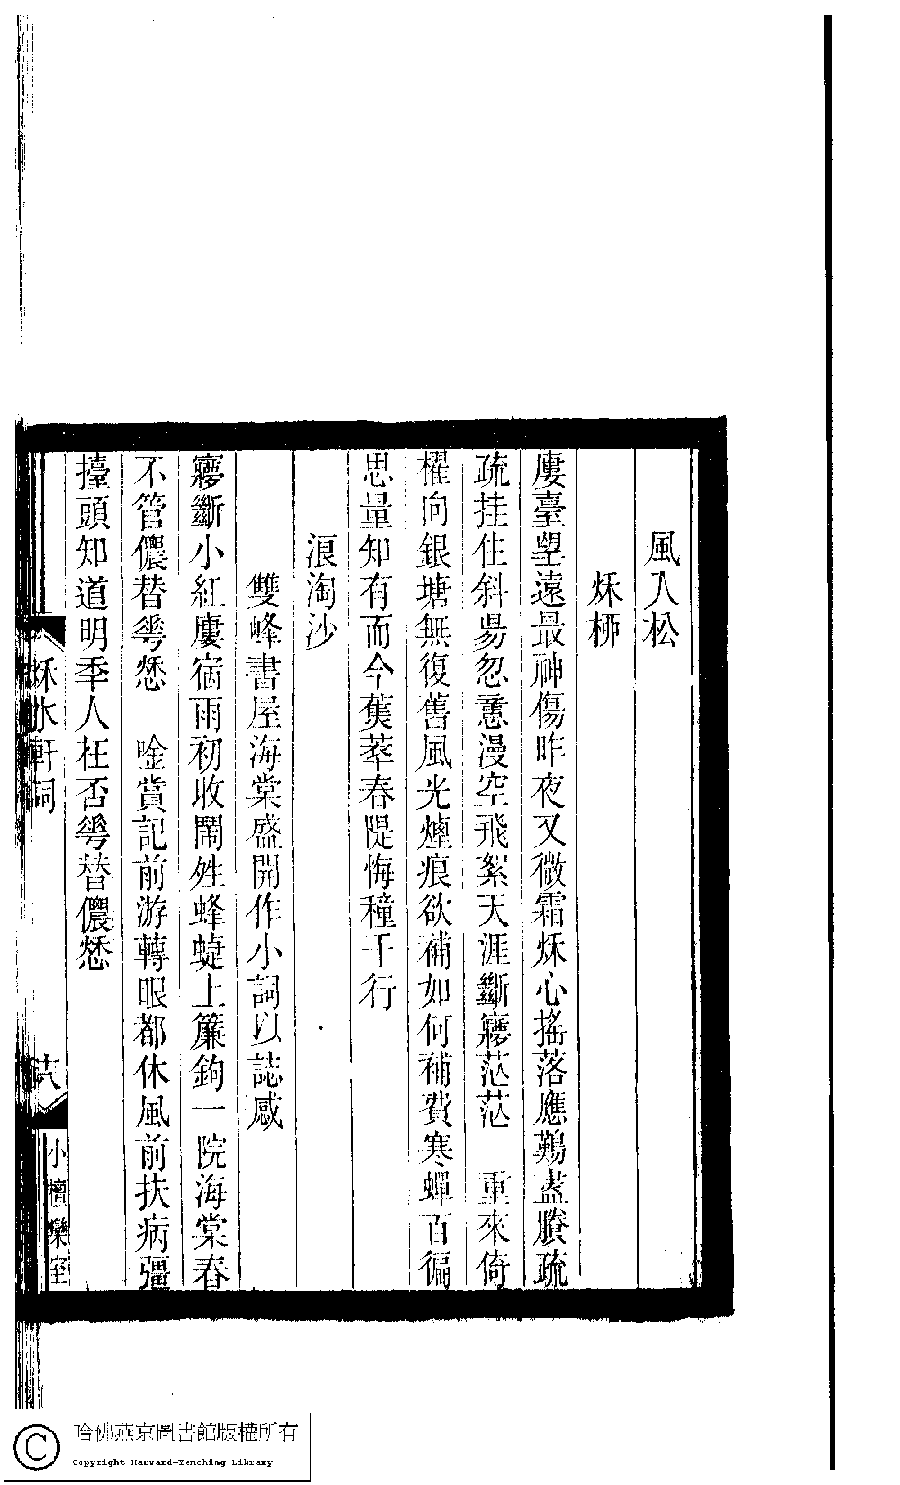 風入松
秌桺
廔臺朢遠最神傷昨夜又微霜秌心搖落應難盡賸疏
疏挂住斜昜忽意漫空飛絮天涯斷㝱茫茫　重來倚
櫂向銀塘無復舊風光煙痕欲補如何補費寒蟬百徧
思量知有而今蕉萃春隄悔穜千行
浪淘沙
雙峰書屋海棠盛開作小詞以誌感
㝱斷小紅廔宿雨初收鬧䖵蜂蜨上簾鉤一院海棠春
不管儂替䔢愁　唫賞記前游轉眼都休風前扶病彊
擡頭知道明秊人在否䔢替儂愁
秌水軒詞
六
小檀欒室
哈佛燕京圖書館版權所有
Copyright Harvard-Yenching Library